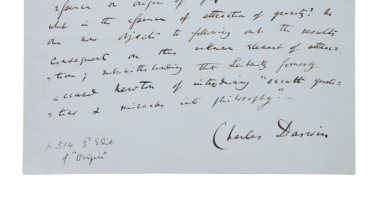 essence or origin of life
what is the essence of attraction of gravity? No
one now objects to following out the results
consequent on this unknown element of attrac-
-tion; notwithstanding that Leibnitz formerly
accused Newton of introducing "occult quali-
-ties & miracles into philosophy".—
Charles Darwin
p 514 3d Edit
of "Origin"